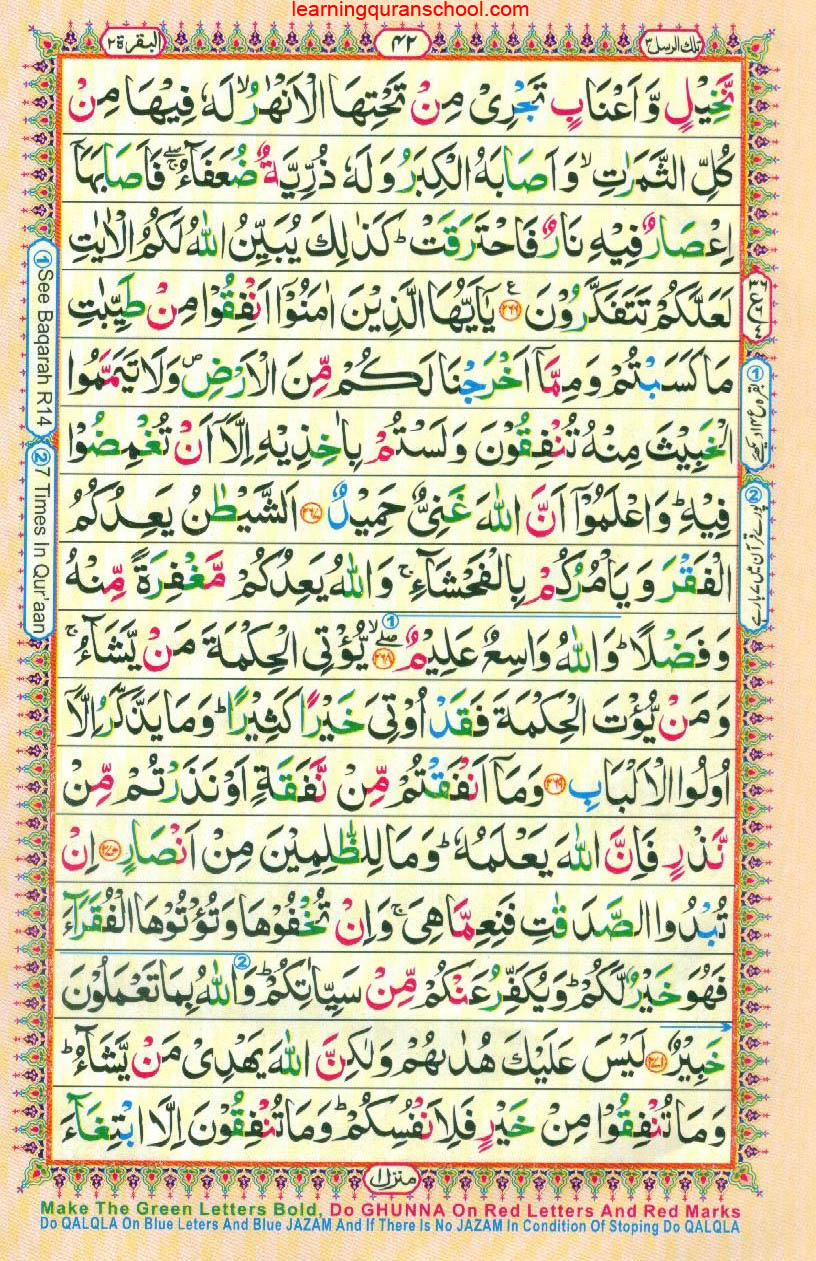 learningquranschool.com
البقرة ٢
٤٢
تلك الرسل ٣
نَّخِيْلٍ وَّاَعْنَابٍ تَجْرِىْ مِنْ تَحْتِهَا الْاَنْهٰرُ ۙ لَهٗ فِيْهَا مِنْ
كُلِّ الثَّمَرٰتِ ۙ وَاَصَابَهُ الْكِبَرُ وَلَهٗ ذُرِّيَّةٌ ضُعَفَآءُ ۖۚ فَاَصَابَهَاۤ
اِعْصَارٌ فِيْهِ نَارٌ فَاحْتَرَقَتْ ؕ كَذٰلِكَ يُبَيِّنُ اللّٰهُ لَكُمُ الْاٰيٰتِ
لَعَلَّكُمْ تَتَفَكَّرُوْنَ ﴿۲۶۶﴾ ع يٰۤاَيُّهَا الَّذِيْنَ اٰمَنُوْۤا اَنْفِقُوْا مِنْ طَيِّبٰتِ
مَا كَسَبْتُمْ وَمِمَّاۤ اَخْرَجْنَا لَكُمْ مِّنَ الْاَرْضِ ۪ وَلَا تَيَمَّمُوا
الْخَبِيْثَ مِنْهُ تُنْفِقُوْنَ وَلَسْتُمْ بِاٰخِذِيْهِ اِلَّاۤ اَنْ تُغْمِضُوْا
فِيْهِ ؕ وَاعْلَمُوْۤا اَنَّ اللّٰهَ غَنِىٌّ حَمِيْدٌ ﴿۲۶۷﴾ اَلشَّيْطٰنُ يَعِدُكُمُ
الْفَقْرَ وَيَاْمُرُكُمْ بِالْفَحْشَآءِ ۚ وَاللّٰهُ يَعِدُكُمْ مَّغْفِرَةً مِّنْهُ
وَفَضْلًا ؕ وَاللّٰهُ وَاسِعٌ عَلِيْمٌ ﴿۲۶۸﴾ ۖۙ ① يُّؤْتِى الْحِكْمَةَ مَنْ يَّشَآءُ ۚ
وَمَنْ يُّؤْتَ الْحِكْمَةَ فَقَدْ اُوْتِىَ خَيْرًا كَثِيْرًا ؕ وَمَا يَذَّكَّرُ اِلَّاۤ
اُولُوا الْاَلْبَابِ ﴿۲۶۹﴾ وَمَاۤ اَنْفَقْتُمْ مِّنْ نَّفَقَةٍ اَوْ نَذَرْتُمْ مِّنْ
نَّذْرٍ فَاِنَّ اللّٰهَ يَعْلَمُهٗ ؕ وَمَا لِلظّٰلِمِيْنَ مِنْ اَنْصَارٍ ﴿۲۷۰﴾ اِنْ
تُبْدُوا الصَّدَقٰتِ فَنِعِمَّا هِىَ ۚ وَاِنْ تُخْفُوْهَا وَتُؤْتُوْهَا الْفُقَرَآءَ
فَهُوَ خَيْرٌ لَّكُمْ ؕ وَيُكَفِّرُ عَنْكُمْ مِّنْ سَيِّاٰتِكُمْ ؕ ② وَاللّٰهُ بِمَا تَعْمَلُوْنَ
خَبِيْرٌ ﴿۲۷۱﴾ لَيْسَ عَلَيْكَ هُدٰىهُمْ وَلٰكِنَّ اللّٰهَ يَهْدِىْ مَنْ يَّشَآءُ ؕ
وَمَا تُنْفِقُوْا مِنْ خَيْرٍ فَلِاَنْفُسِكُمْ ؕ وَمَا تُنْفِقُوْنَ اِلَّا ابْتِغَآءَ
منزل ١
① See Baqarah R14
② 7 Times In Qur'aan
Make The Green Letters Bold, Do GHUNNA On Red Letters And Red Marks
Do QALQLA On Blue Leters And Blue JAZAM And If There Is No JAZAM In Condition Of Stoping Do QALQLA